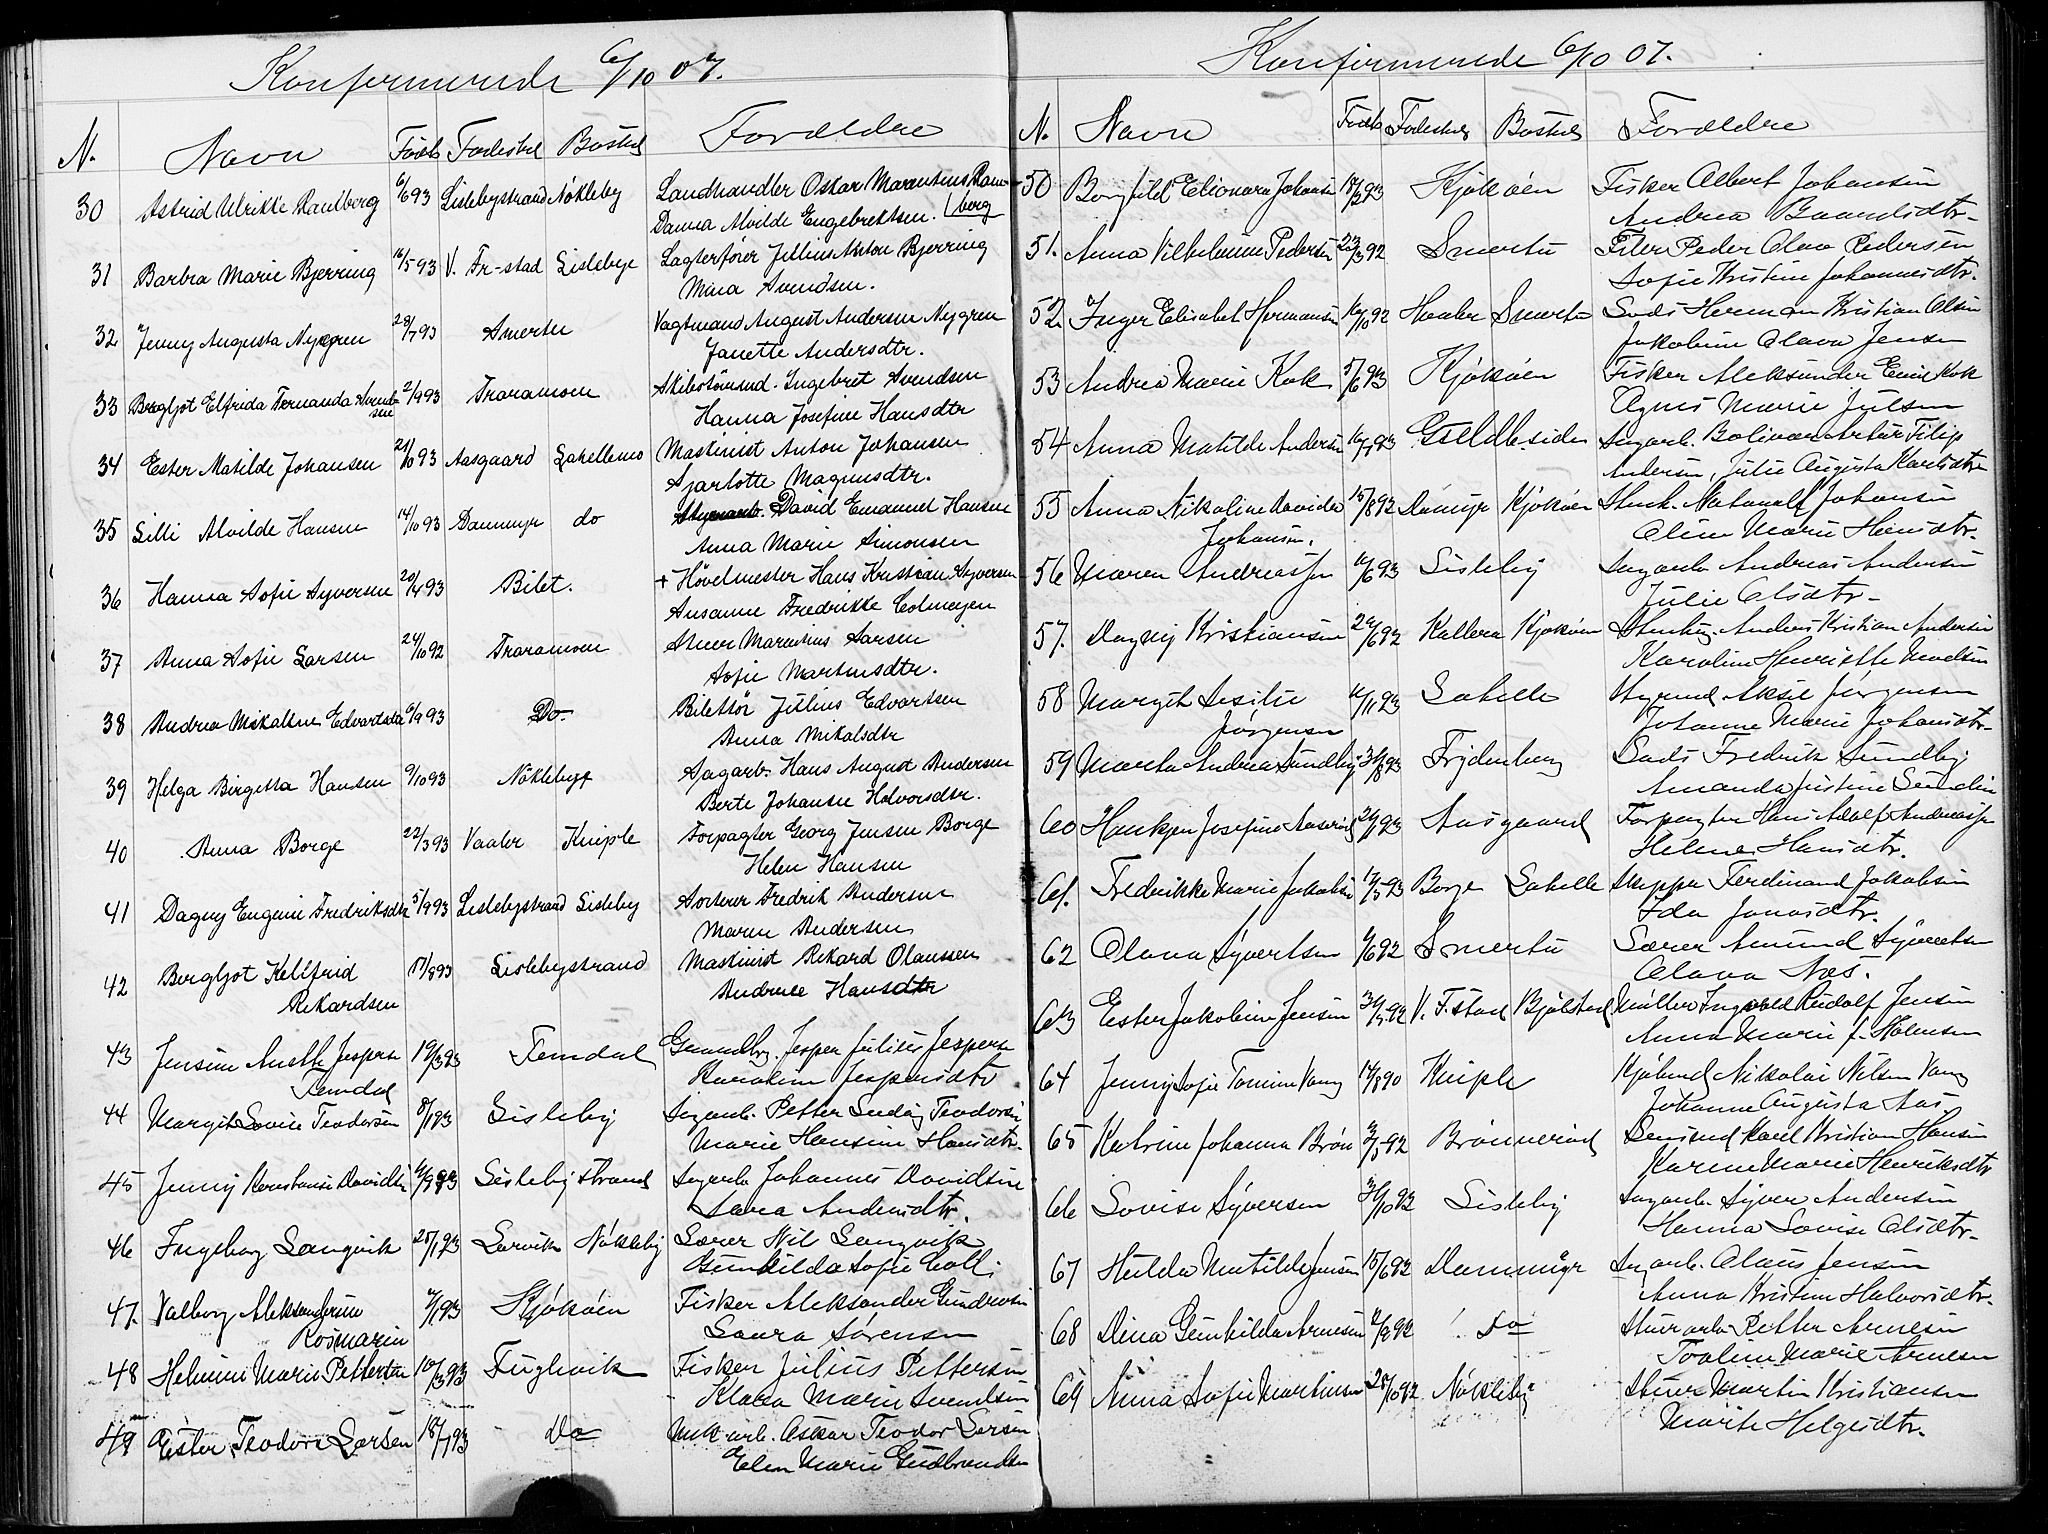 Konfirmerede 6/10 07.
N. Navn Født Fødested Bosted Forældre
30 Astrid Ulrikke Ramberg 6/6 93 Lislebystrand Nökleby Landhandler Oskar Marentius Ram-
berg
Danna Alvilde Engebrektsen.
31 Barbra Marie Bjerring 16/5 93 V. Fr-stad Lislebye Lagterfører Jullius Anton Bjerring
Mina Svendsen.
32 Jenny Augusta Nygren 28/7 93 Smertu Vagtmand August Andersen Nygren
Janette Andersdtr.
33 Bergljot Elfrida Fernanda Svend-
sen 2/9 93 Traramoen Skibstömmd. Ingebret Svendsen
Hanna Josefine Hansdtr
34 Ester Matilde Johansen 21/10 93 Aasgaard Lahellemo Maskinist Anton Johansen
Sjarlotte Magnusdtr.
35 Lilli Alvilde Hansen 14/10 93 Dammyr do David Emanuel Hansen
Anna Marie Simonsen
36 Hanna Sofie Syversen 20/4 93 Bilet. + Hövelmester Hans Kristian Syversen
Susanne Fredrikke Colmeyen
37 Anna Sofie Larsen 24/10 92 Traramoen Stuer Marentius Larsen
Sofie Martinsdtr.
38 Andrea Mikaline Edvartsen 6/9 93 Do. Biletör Julius Edvartsen
Anna Mikalsdtr
39 Helga Birgitta Hansen 9/10 93 Nökleby Sagarb. Hans August Andersen
Berte Johanne Halvorsdtr.
40 Anna Borge 22/3 93 Vaaler Kniple Forpagter Georg Jensen Borge
Helen Hansen
41 Dagny Eugenie Fredriksdtr 5/9 93 Lislebystrand Lisleby Sorterer Fredrik Andersen
Maren Andersen
42 Bergljot Kellfrid 17/8 93 Lislebystrand Maskinist Rikard Olaussen
Rikardsen Andrine Hansdtr
43 Jensine Anette Jespersen 19/3 93 Femdal Grundbrg. Jesper Julius Jespersen
Femdal Karoline Jespersdtr
44 Margit Lovise Teodorsen 8/1 93 Lisleby Sagarb. Petter Ludvig Teodorsen
Marie Hansine Hansdtr.
45 Jenny Konstanse Davidsen 4/9 93 Lisleby strand Sagarb Johannes Davidsen
Sara Andersdtr.
46 Ingeborg Langvik 25/1 93 Larvik Nökleby Lærer Nils Langvik
Gunhilda Sofie Coll.
47. Valborg Aleksanderine 7/1 93 Kjøkøen Fisker Aleksander Gundersen
Rosmarin Laura Sörensen
48 Helmine Marie Pettersen 10/3 93 Fuglevik Fisker Julius Pettersen
Klara Marie Svendsen
49 Ester Teodore Larsen 18/7 93 Do Mek arb. Oskar Teodor Larsen
Elen Marie Gudbrandsen
Konfirmerede 6/10 07.
N. Navn Født Fødested Bosted Forældre
50 Borghild Elionora Johansen 18/2 93 Kjøkøen Fisker Albert Johansen
Andrea Baardsdtr-
51. Anna Vilhelmine Pedersen 23/3 92 Smertu Filer Peder Olava Pedersen
Sofie Kristine Johannesdtr.
52 Inger Elisabet Hermansen 16/10 92 Hvaler Smertu Herman Kristian Olsen
Jakobine Olava Jensen
53 Andrea Marie Kok 5/6 93 Kjøkøen Fisker Aleksander Emil Kok
Agnes Marie Julsen
54 Anna Matilde Andersen 16/7 93 Sagarb. Bolivar Artur Filip
Andersen, Julie Augusta Karlsdtr
55 Anna Nikoline Davida 15/8 92 Damyr Kjøkøen Natanael Johansen
Johansen. Oline Marie Hansdtr.
56 Maren Andreassen 12/6 93 Lisleby Sagarb Andreas Andersen
Julie Olsdtr-
57. Dagny Kristiansen 29/6 92 Kallera Kjøkøen Anders Kristian Andersen
Karoline Henriette Madsen
58 Margit Sesilie 12/11 93 Lahelle Styrmd Aksel Jørgensen
Jørgensen Johanne Marie Johansdtr-
59 Marta Andrea Sundby 31/8 93 Frydenberg Fredrik Sundby
Amanda Justine Sundin
60 Haukjen Josefine Aaserød 26/1 93 Aasgaard Forpagter Hans Adolf Andreassen
Helene Hansdtr.
61. Fredrikke Marie Jakobsen 17/5 93 Borge Lahelle Skipper Ferdinand Jakobsen
Ida Jonasdtr.
62 Olava Syvertsen 1/6 92 Smertu Lærer Amund Syvertsen
Olava Næs.
63 Ester Jakobine Jensen 31/5 92 V. F.stad Bjølstad Møller Ingvald Rudolf Jensen
Anna Marie f. Halvorsen
64 Jenny Sofie Tomine Vang 14/8 90 Kniple Kjøbmd Nikolai Nilsen Vang
Johanne Augusta Aas
65 Katrine Johanna Brøn 2/5 92 Brønnerød Karl Kristian Hansen
Karen Marie Henriksdtr
66 Lovise Syversen 31/10 92 Lisleby Sagarb. Syver Andersen
Hanna Lovise Olsdtr-
67 Hulda Matilde Jensen 15/6 92 Dammyr Sagarb. Olaus Jensen
Anna Kristine Halvorsdtr.
68 Dina Gunhilda Arnesen 12/9 92 do Stuerarb Petter Arnesen
Tooline Marie Arnesen
69 Anna Sofie Martinsen 28/10 92 Nökleby Stuer Martin Kristiansen
Marte Helgesdtr.